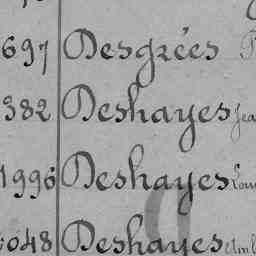 697 Desgrées
382 Deshayes
1996 Deshayes
048 Deshayes